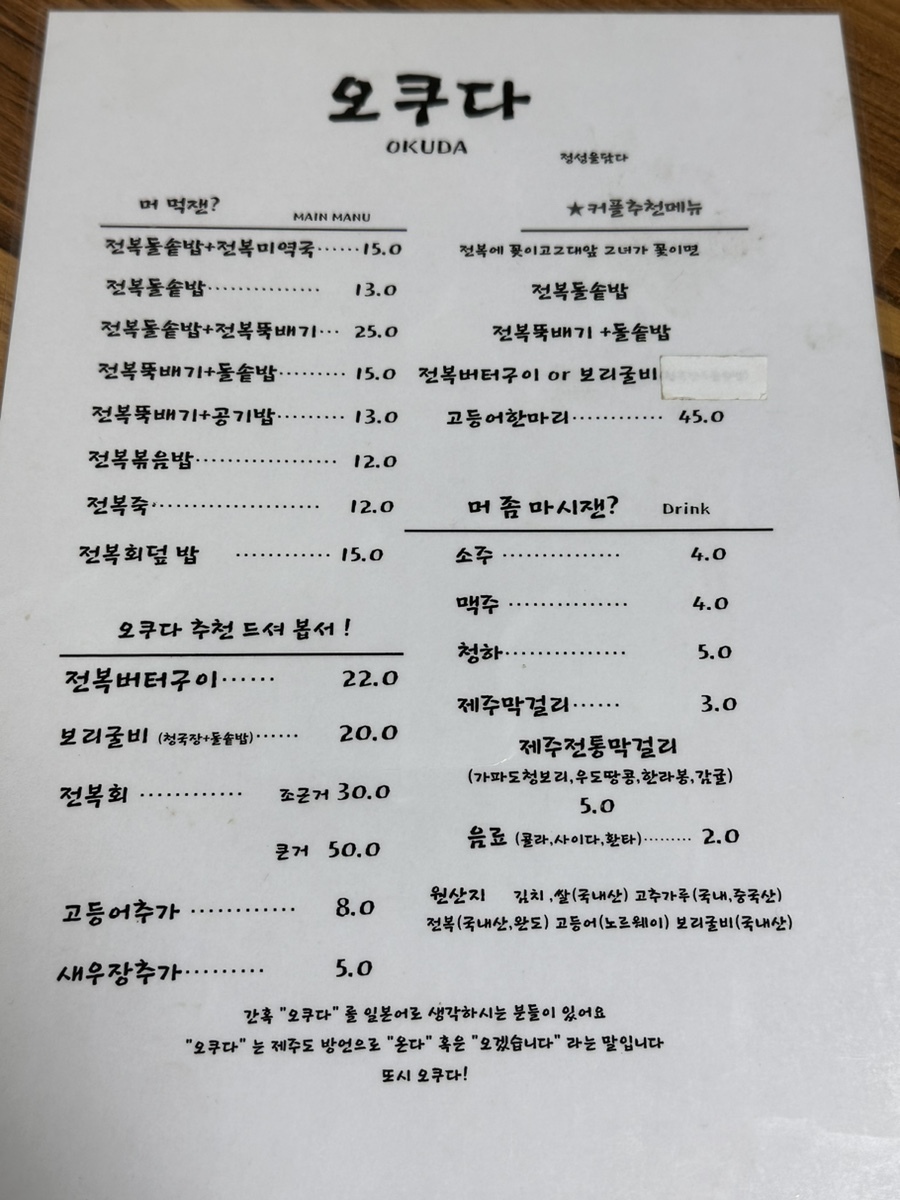 오쿠다
OKUDA
정성을담다
머 먹잰?
MAIN MANU
전복돌솥밥+전복미역국······15.0
전복돌솥밥··············· 13.0
전복돌솥밥+전복뚝배기··· 25.0
전복뚝배기+돌솥밥········· 15.0
전복뚝배기+공기밥········· 13.0
전복볶음밥·················· 12.0
전복죽····················· 12.0
전복회덮 밥 ············ 15.0
★커플추천메뉴
전복에 꽂이고그대앞 그녀가 꽂이면
전복돌솥밥
전복뚝배기 +돌솥밥
전복버터구이 or 보리굴비
고등어한마리············ 45.0
오쿠다 추천 드셔 봅서 !
전복버터구이······ 22.0
보리굴비 (청국장+돌솥밥)······ 20.0
전복회 ············ 조근거 30.0
큰거 50.0
고등어추가 ············ 8.0
새우장추가········· 5.0
머 좀 마시잰? Drink
소주 ··············· 4.0
맥주 ··············· 4.0
청하··············· 5.0
제주막걸리······ 3.0
제주전통막걸리
(가파도청보리,우도땅콩,한라봉,감귤)
5.0
음료 (콜라,사이다,환타)········· 2.0
원산지 김치 ,쌀(국내산) 고추가루(국내,중국산)
전복(국내산,완도) 고등어(노르웨이) 보리굴비(국내산)
간혹 "오쿠다" 를 일본어로 생각하시는 분들이 있어요
"오쿠다" 는 제주도 방언으로 "온다" 혹은 "오겠습니다" 라는 말입니다
또시 오쿠다!